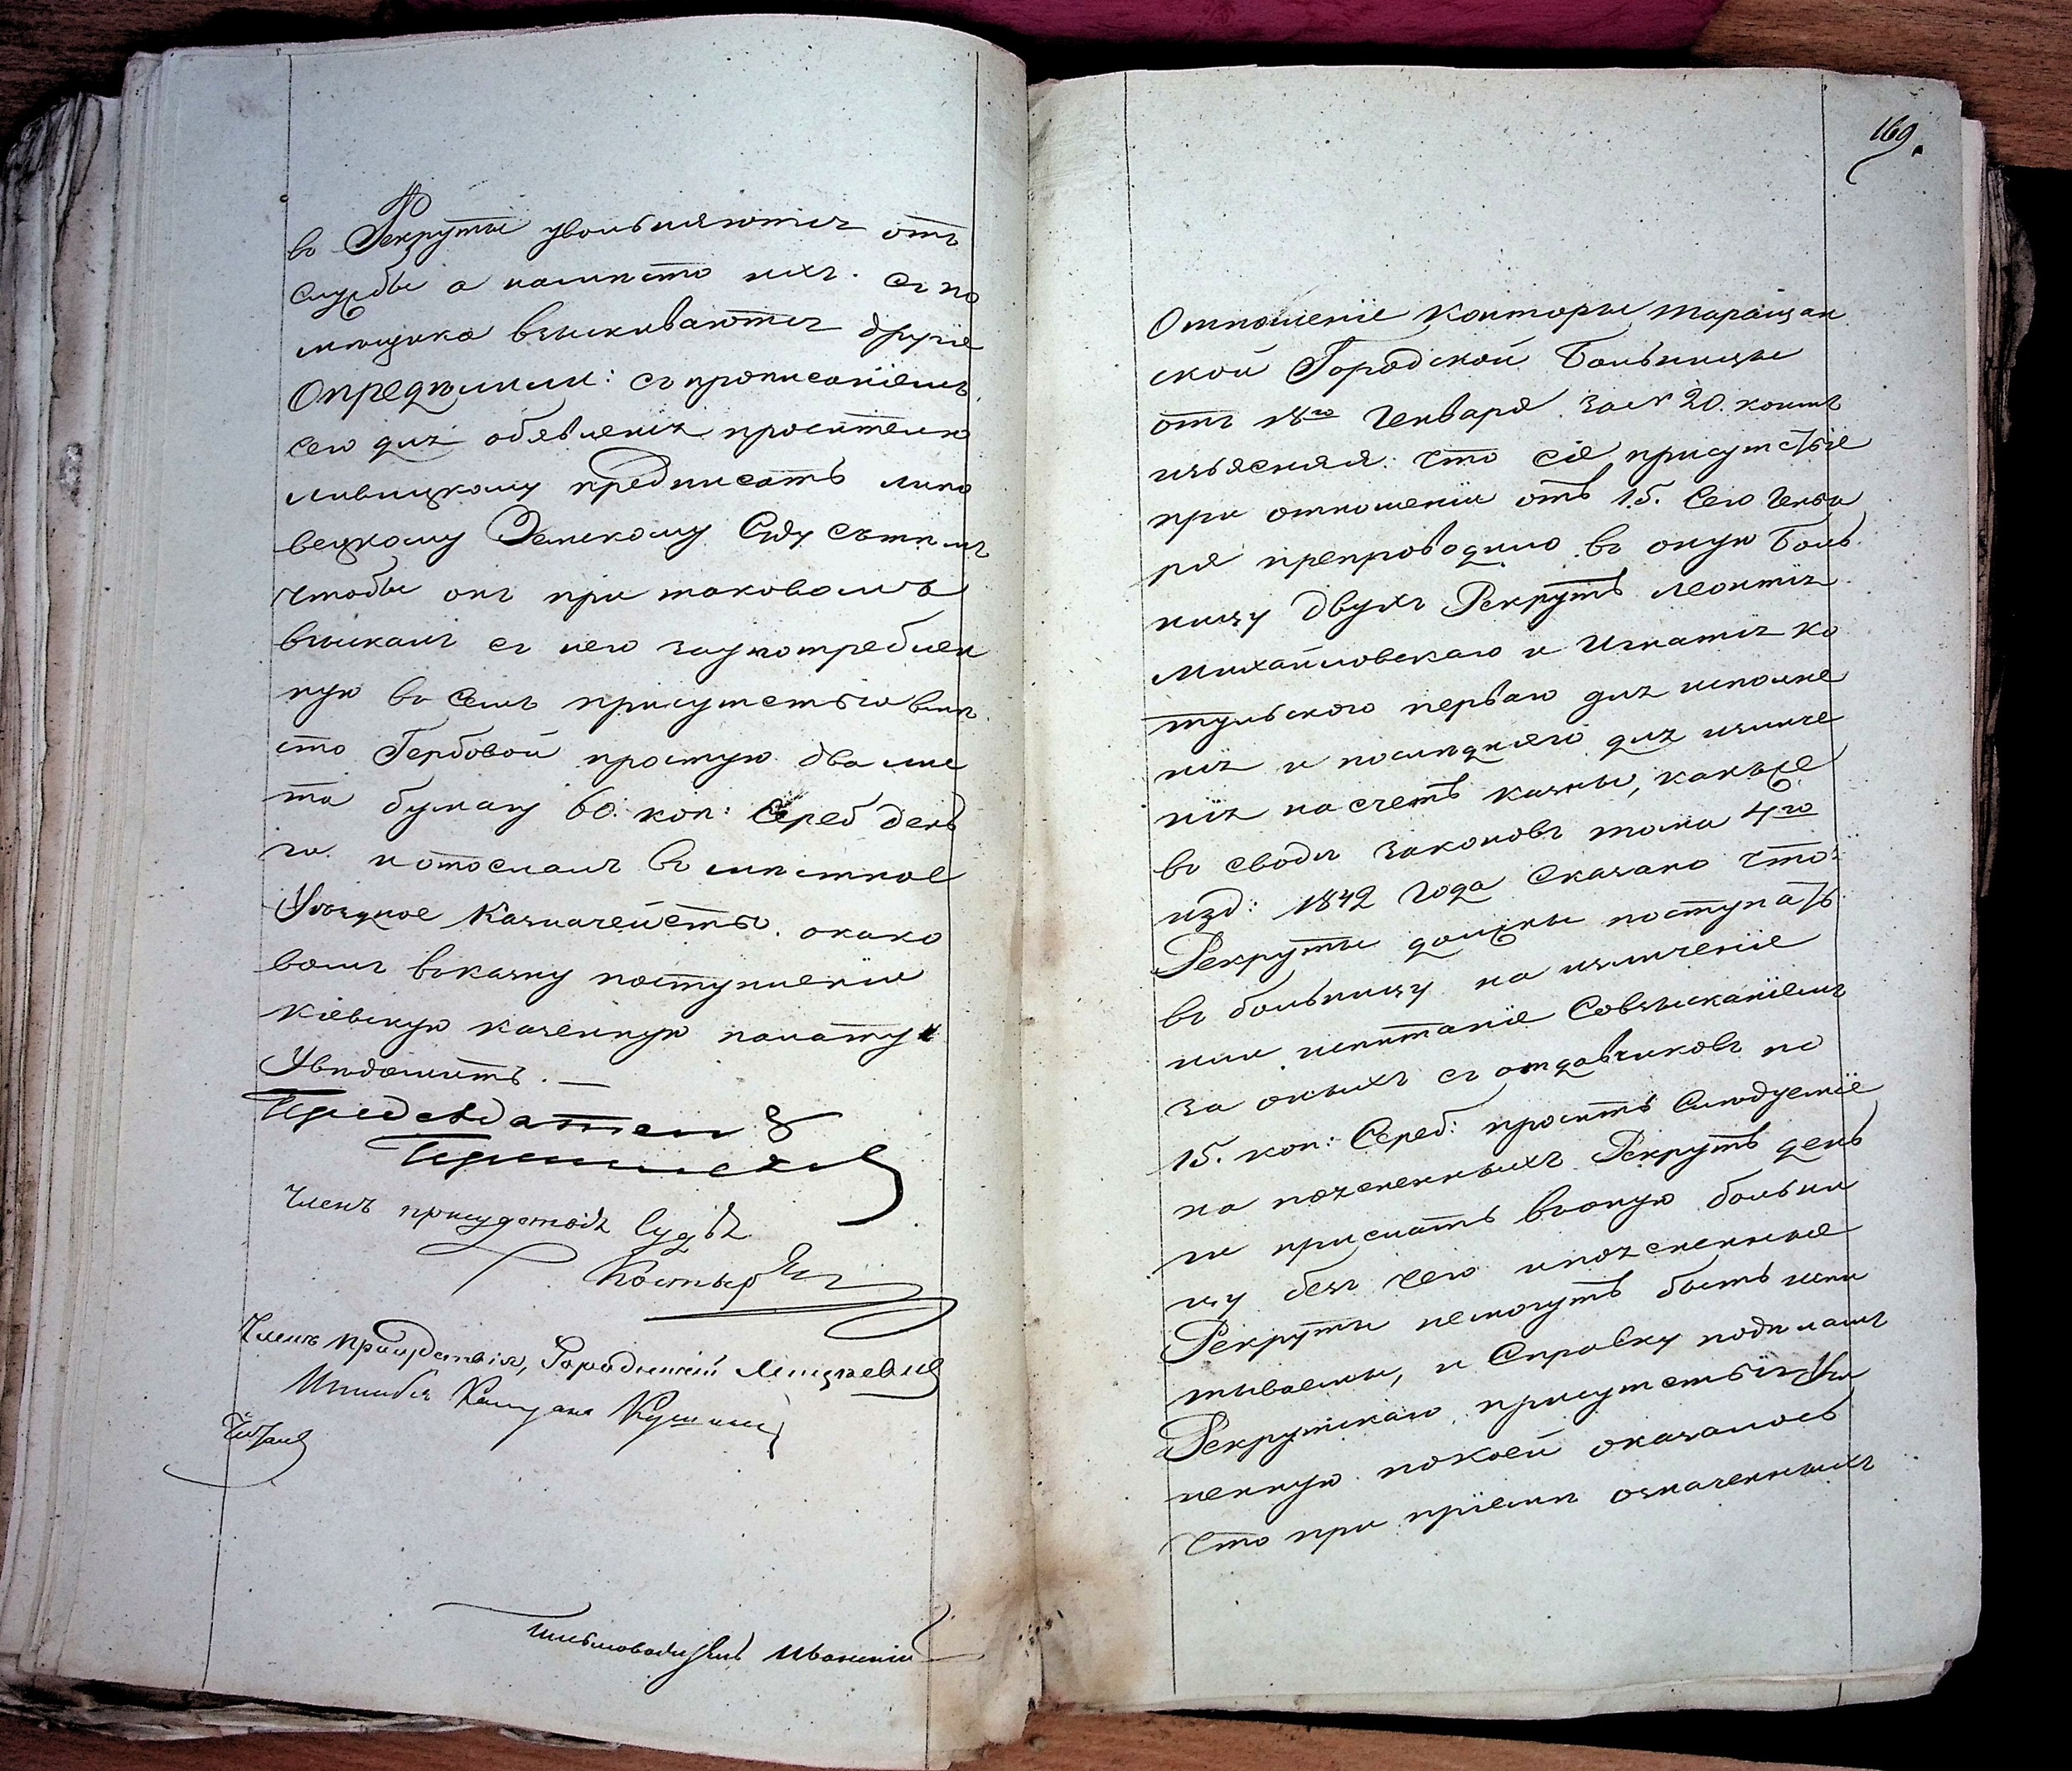 въ Рекруты увольняются отъ
службы а намѣсто ихъ. съ по
мѣщика взыскиваются другіе
Опредѣлили: съ прописаніемъ
сего для объявленія просителю
Ливицкому предписать Липо
вецкому Земскому Суду сътѣмъ
чтобы онъ при таковомъ
взыскалъ съ него заупотреблен
ную въ семъ присутствіи вмѣ
сто Гербовой простую два лис
та бумагу 60. коп: Сереб день
ги. и отослалъ въ мѣстное
Уѣздное Казначейство. окако
вомъ въказну поступленіи
Кіевскую казенную палату
Увѣдомить. —
Предсѣдатель
Членъ присудствія Судья
Членъ присудствія, Городничій
Читалъ
Письмоводитель
169.
Отношеніе Конторы Таращан
ской Городской Больницы
отъ 18го Генваря за № 20. коимъ
изъясняя: что сіе присутствіе
при отношеніи отъ 15. сего Генва
ря препроводило въ оную Боль
ницу двухъ Рекрутъ Леонтія
Михайловскаго и Игнатія Ко
тульского перваго для исполне
нія и послѣдняго для излече
нія на счетъ казны, какъже
въ сводѣ законовъ тома 4го
изд: 1842 года сказано что:
Рекруты должны поступать
въ больницу на излеченіе
или испитаніе Совзысканіемъ
за оныхъ съ отдатчиковъ по
15. коп: Сереб: проситъ Слѣдуеміе
на поясненныхъ Рекрутъ день
ги прислать въоную больни
цу безъ чего ипоясненные
Рекруты немогутъ быть испи
тываемы, и Справку подѣламъ
Рекрутскаго присутствія Учи
ненную покоей оказалось
Что при пріемѣ означенныхъ